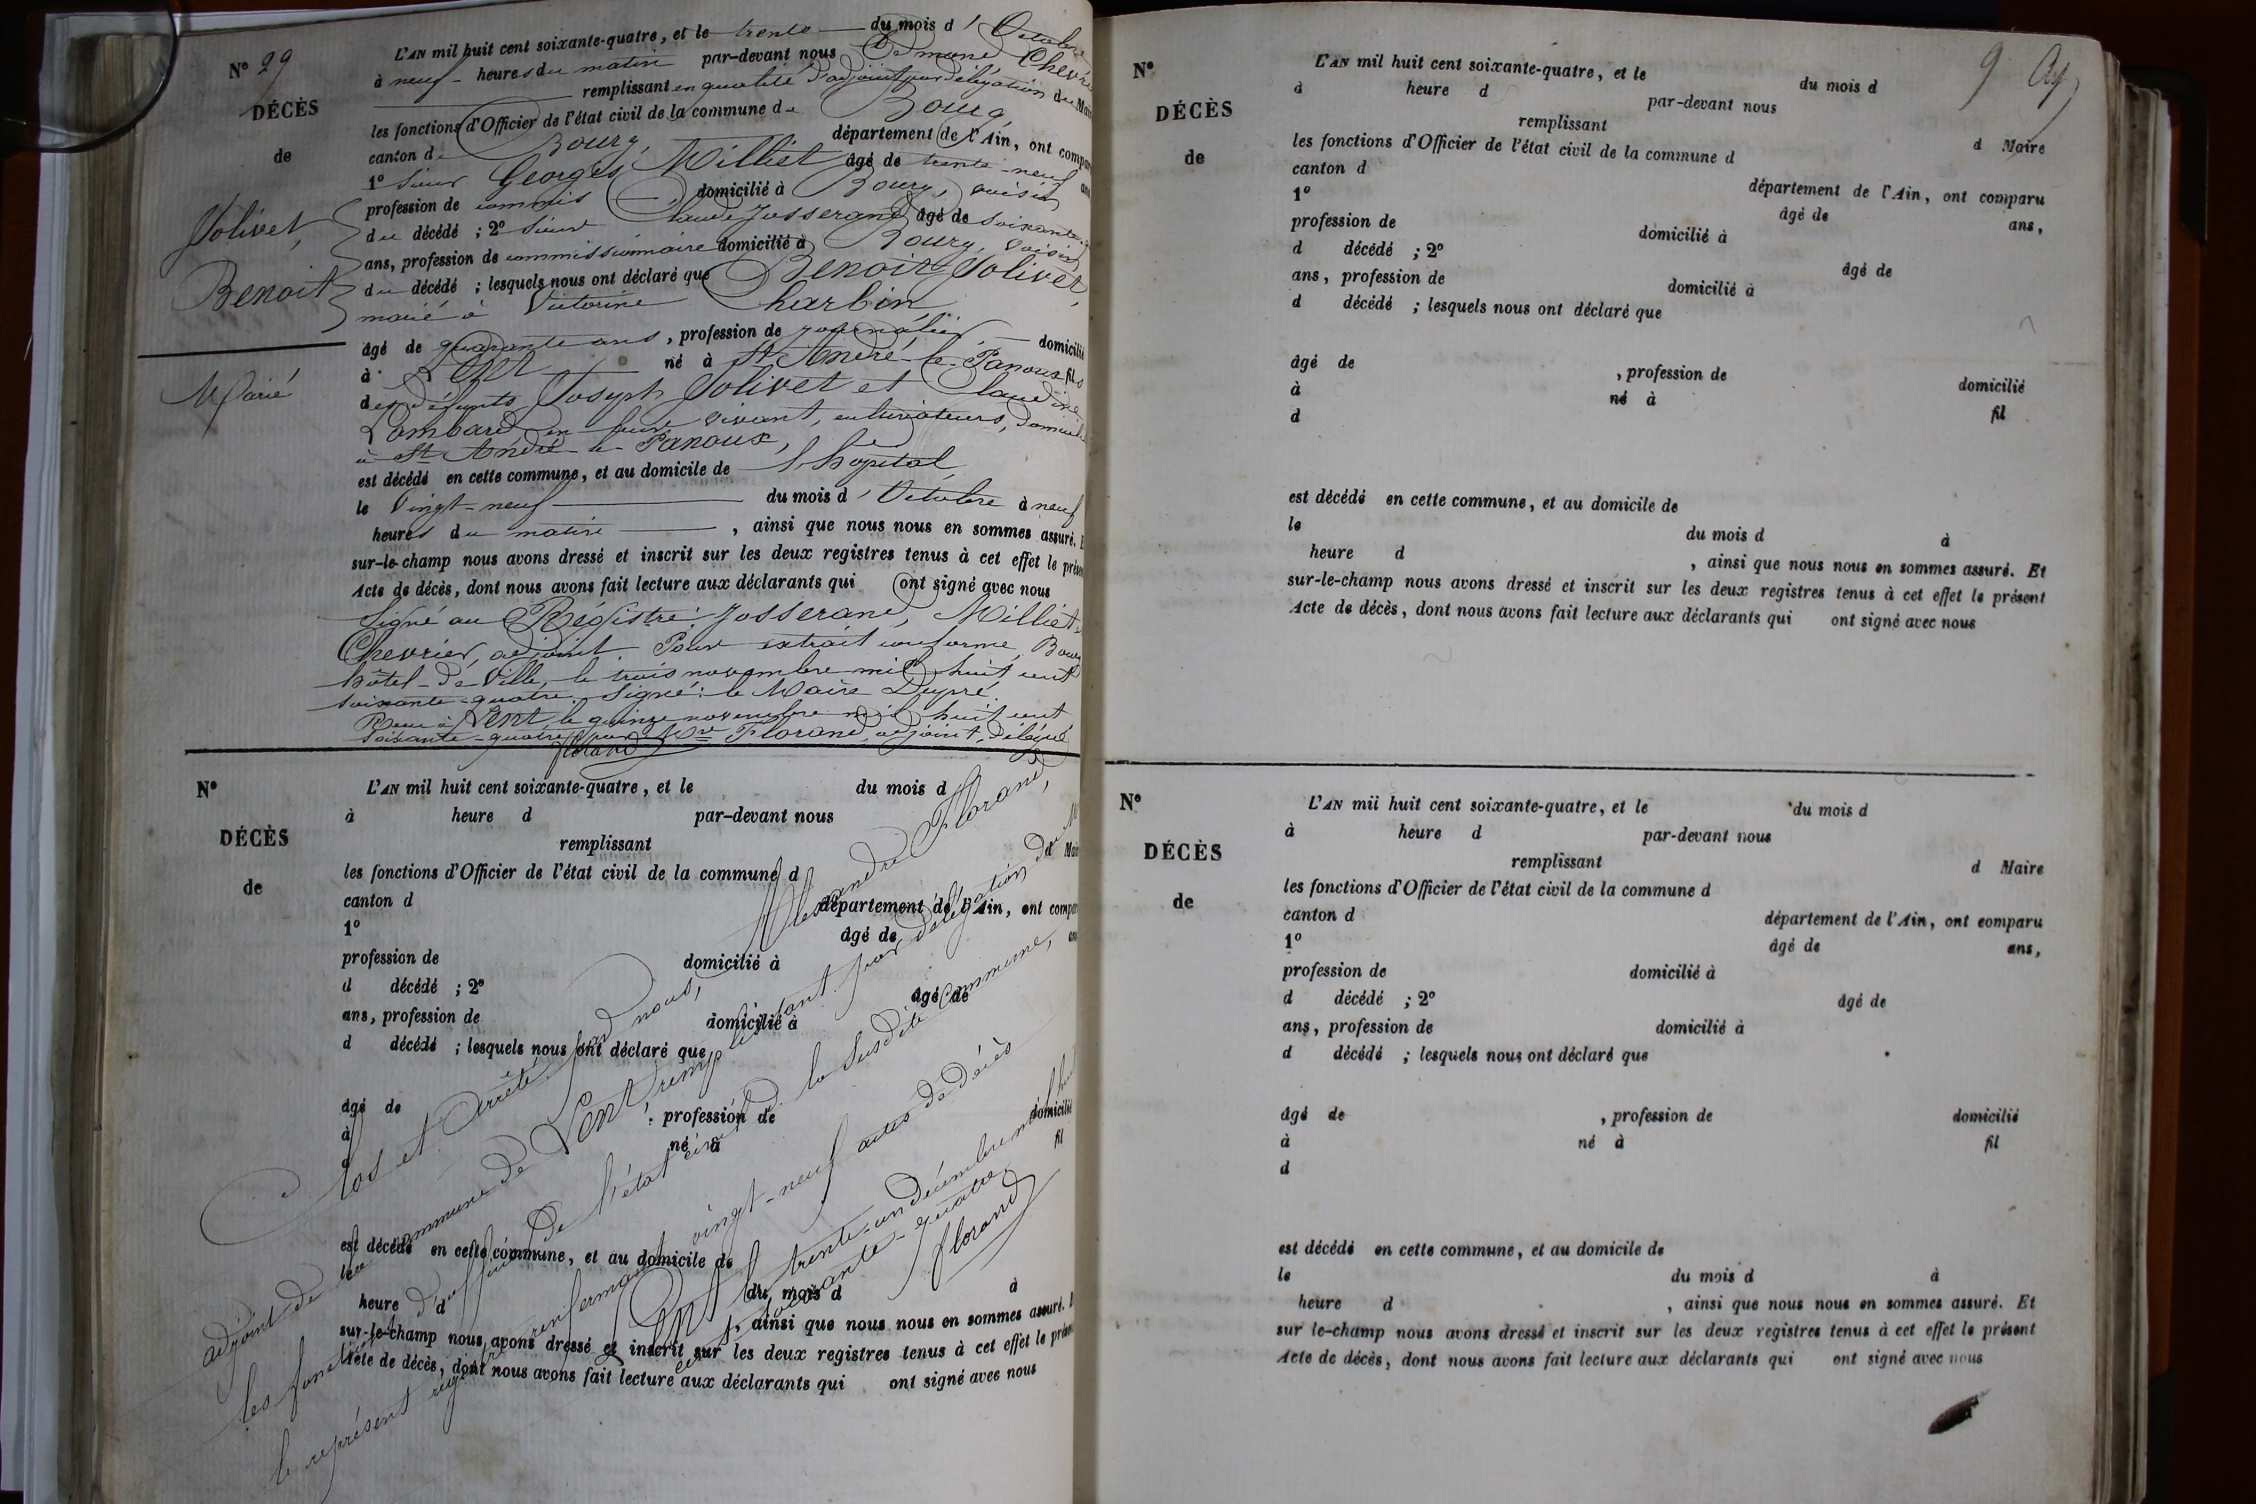 N° 29
DÉCÈS
de
Jolivet,
Benoit
Marié
L'AN mil huit cent soixante-quatre, et le trente du mois d'Octobre
à neuf heures du matin par-devant nous Edmond Chevrier
remplissant en qualité d'adjoint par délégation du Maire
les fonctions d'Officier de l'état civil de la commune de Bourg,
canton de Bourg, département de l'Ain, ont comparu
1° Sieur Georges Milliet âgé de trente-neuf ans
profession de commis domicilié à Bourg, voisin
du décédé ; 2° Sieur Claude Josserand âgé de soixante
ans, profession de commissionnaire domicilié à Bourg, voisin
du décédé ; lesquels nous ont déclaré que Benoit Jolivet,
marié à Victorine Charbin
âgé de quarante ans, profession de journalier domicilié
à Lent né à St André-le-Panoux fils
des défunts Joseph Jolivet et Claudine
Lombard en leur vivant, cultivateurs, domiciliés
à St André-le-Panoux,
est décédé en cette commune, et au domicile de l'hopital
le vingt-neuf du mois d'Octobre à neuf
heures du matin, ainsi que nous nous en sommes assuré. E
sur-le-champ nous avons dressé et inscrit sur les deux registres tenus à cet effet le présent
Acte de décès, dont nous avons fait lecture aux déclarants qui ont signé avec nous
Signé au Régistre: Josserand, Milliet
Chevrier, adjoint. Pour extrait conforme, Bourg
hôtel-de-Ville, le trois novembre mil huit cent
soixante-quatre. Signé: le Maire Dupré.
à Lent, le quinze novembre mil huit cent
soixante-quatre, par Mre Florand, adjoint, délégué
florand
N°
DÉCÈS
de
L'AN mil huit cent soixante-quatre, et le du mois d
à heure d par-devant nous
remplissant d Maire
les fonctions d'Officier de l'état civil de la commune d
canton d département de l'Ain, ont comparu
1° âgé de ans
profession de domicilié à
d décédé ; 2° âgé de
ans, profession de domicilié à
d décédé ; lesquels nous ont déclaré que
âgé de , profession de domicilié
à né à fil
d
est décédé en cette commune, et au domicile de
le du mois d à
heure d , ainsi que nous nous en sommes assuré. E
sur-le-champ nous avons dressé et inscrit sur les deux registres tenus à cet effet le présent
Acte de décès, dont nous avons fait lecture aux déclarants qui ont signé avec nous
Clos et arrêté par nous, Alexandre Florand,
adjoint de la commune de Lent, remplissant par délégation du M
les fonctions d'officier de l'état civil de la susdite commune,
le présent registre renfermant vingt-neuf actes de décès
Lent le trente-un décembre mil huit
cent soixante-quatre.
florand
9 
N°
DÉCÈS
de
L'AN mil huit cent soixante-quatre, et le du mois d
à heure d par-devant nous
remplissant d Maire
les fonctions d'Officier de l'état civil de la commune d
canton d département de l'Ain, ont comparu
1° âgé de ans,
profession de domicilié à
d décédé ; 2° âgé de
ans, profession de domicilié à
d décédé ; lesquels nous ont déclaré que
âgé de , profession de domicilié
à né à fil
d
est décédé en cette commune, et au domicile de
le du mois d à
heure d , ainsi que nous nous en sommes assuré. Et
sur-le-champ nous avons dressé et inscrit sur les deux registres tenus à cet effet le présent
Acte de décès, dont nous avons fait lecture aux déclarants qui ont signé avec nous
N°
DÉCÈS
de
L'AN mil huit cent soixante-quatre, et le du mois d
à heure d par-devant nous
remplissant d Maire
les fonctions d'Officier de l'état civil de la commune d
canton d département de l'Ain, ont comparu
1° âgé de ans,
profession de domicilié à
d décédé ; 2° âgé de
ans, profession de domicilié à
d décédé ; lesquels nous ont déclaré que
âgé de , profession de domicilié
à né à fil
d
est décédé en cette commune, et au domicile de
le du mois d à
heure d , ainsi que nous nous en sommes assuré. Et
sur le-champ nous avons dressé et inscrit sur les deux registres tenus à cet effet le présent
Acte de décès, dont nous avons fait lecture aux déclarants qui ont signé avec nous